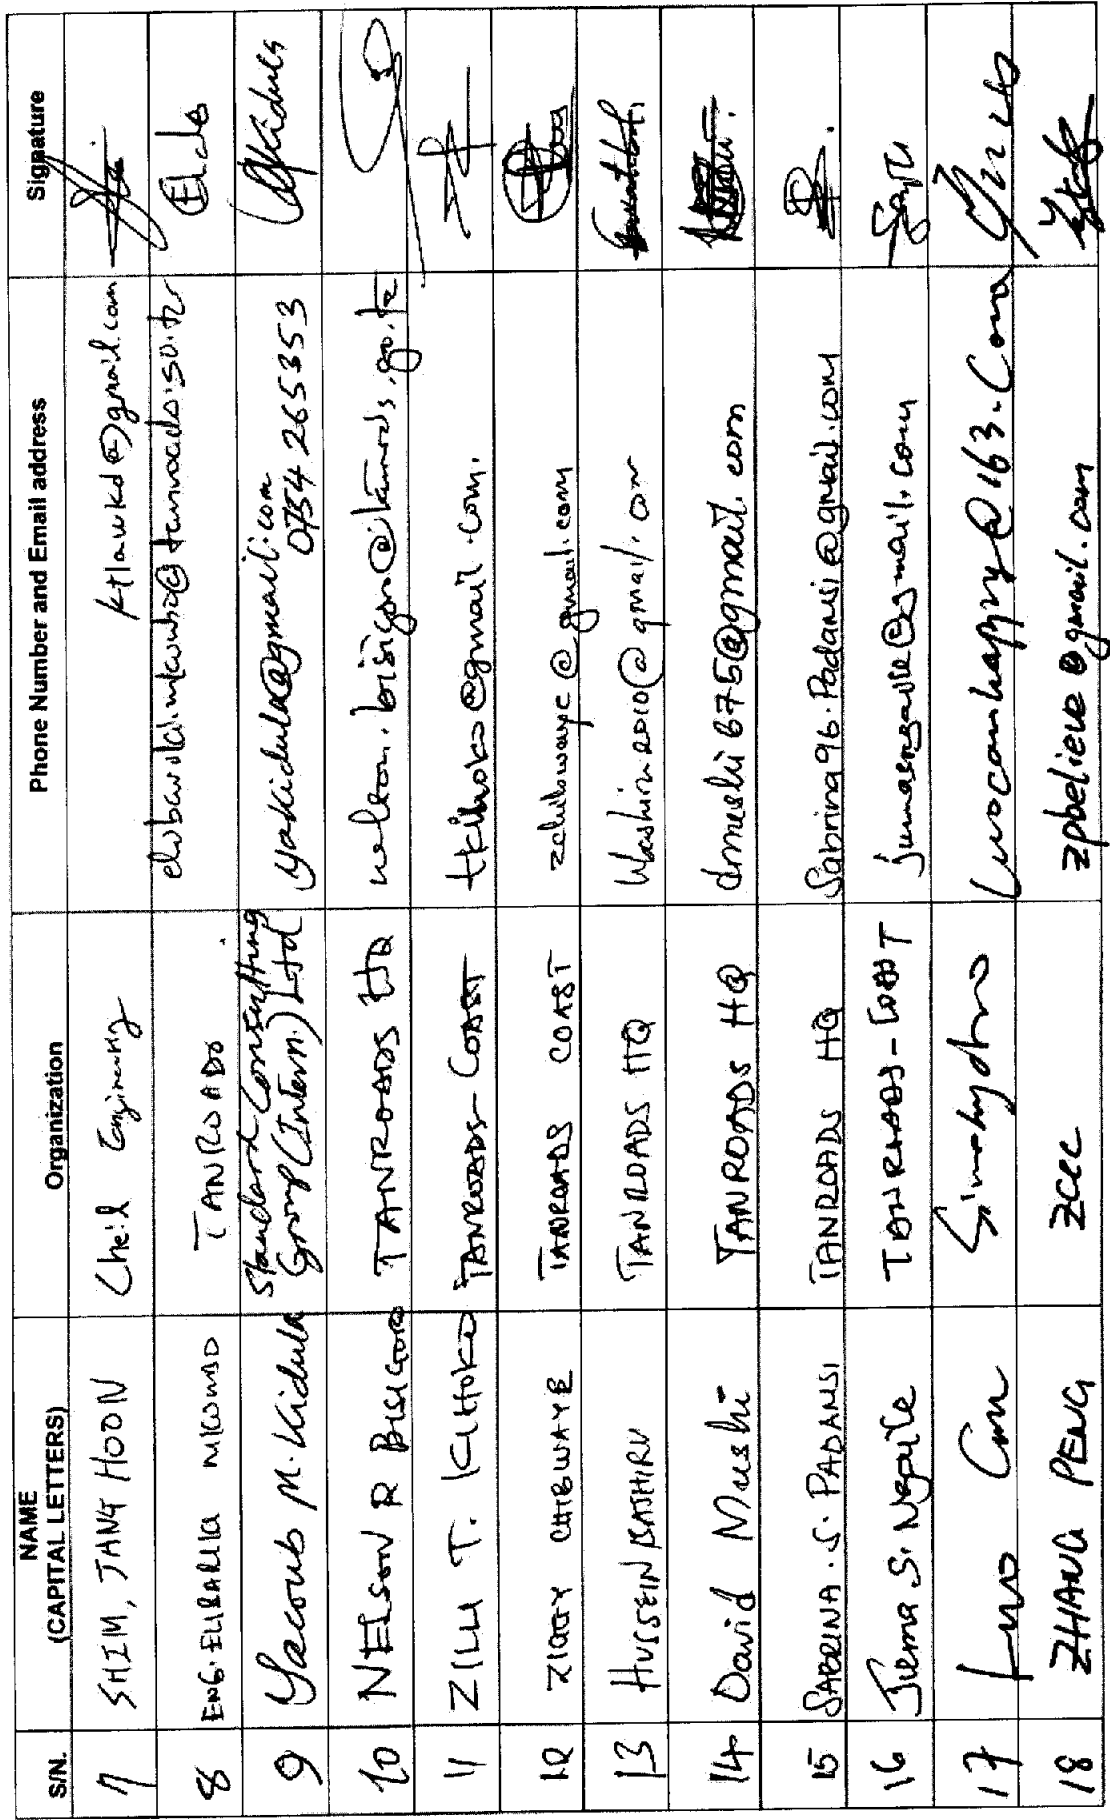 S/N. NAME (CAPITAL LETTERS) Organization Phone Number and Email address Signature
7 SHIM, JANG HOON Cheil Engineering ktlawkd@gmail.com
8 ENG. ELIBARIKI MKUMBO TANROADS
9 Yacoub M. Kidula Standard Consulting Group (Intern.) Ltd yakidula@gmail.com 0754 265353
10 NELSON R BISIGORO TANROADS HQ nelson.bisigoro@tanroads.go.tz
11 ZILLI T. KIHOKO TANROADS-COAST tkihoko@gmail.com.
12 ZIGGY CHIBWAYE TANROADS COAST zchibwaye@gmail.com
13 HUSSEIN BASHIRU TANROADS HQ bashiru2010@gmail.com
14 David Mushi TANROADS HQ dmushi675@gmail.com
15 SABRINA.S. PADANSI TANROADS HQ Sabrina96.Padansi@gmail.com
16 Juma S. Ngaile TANROADS-COAST jumasngaile@gmail.com
17 Luo Can Sinohydro luocanhappy@163.com
18 ZHANG PENG ZCCC zpbelieve@gmail.com